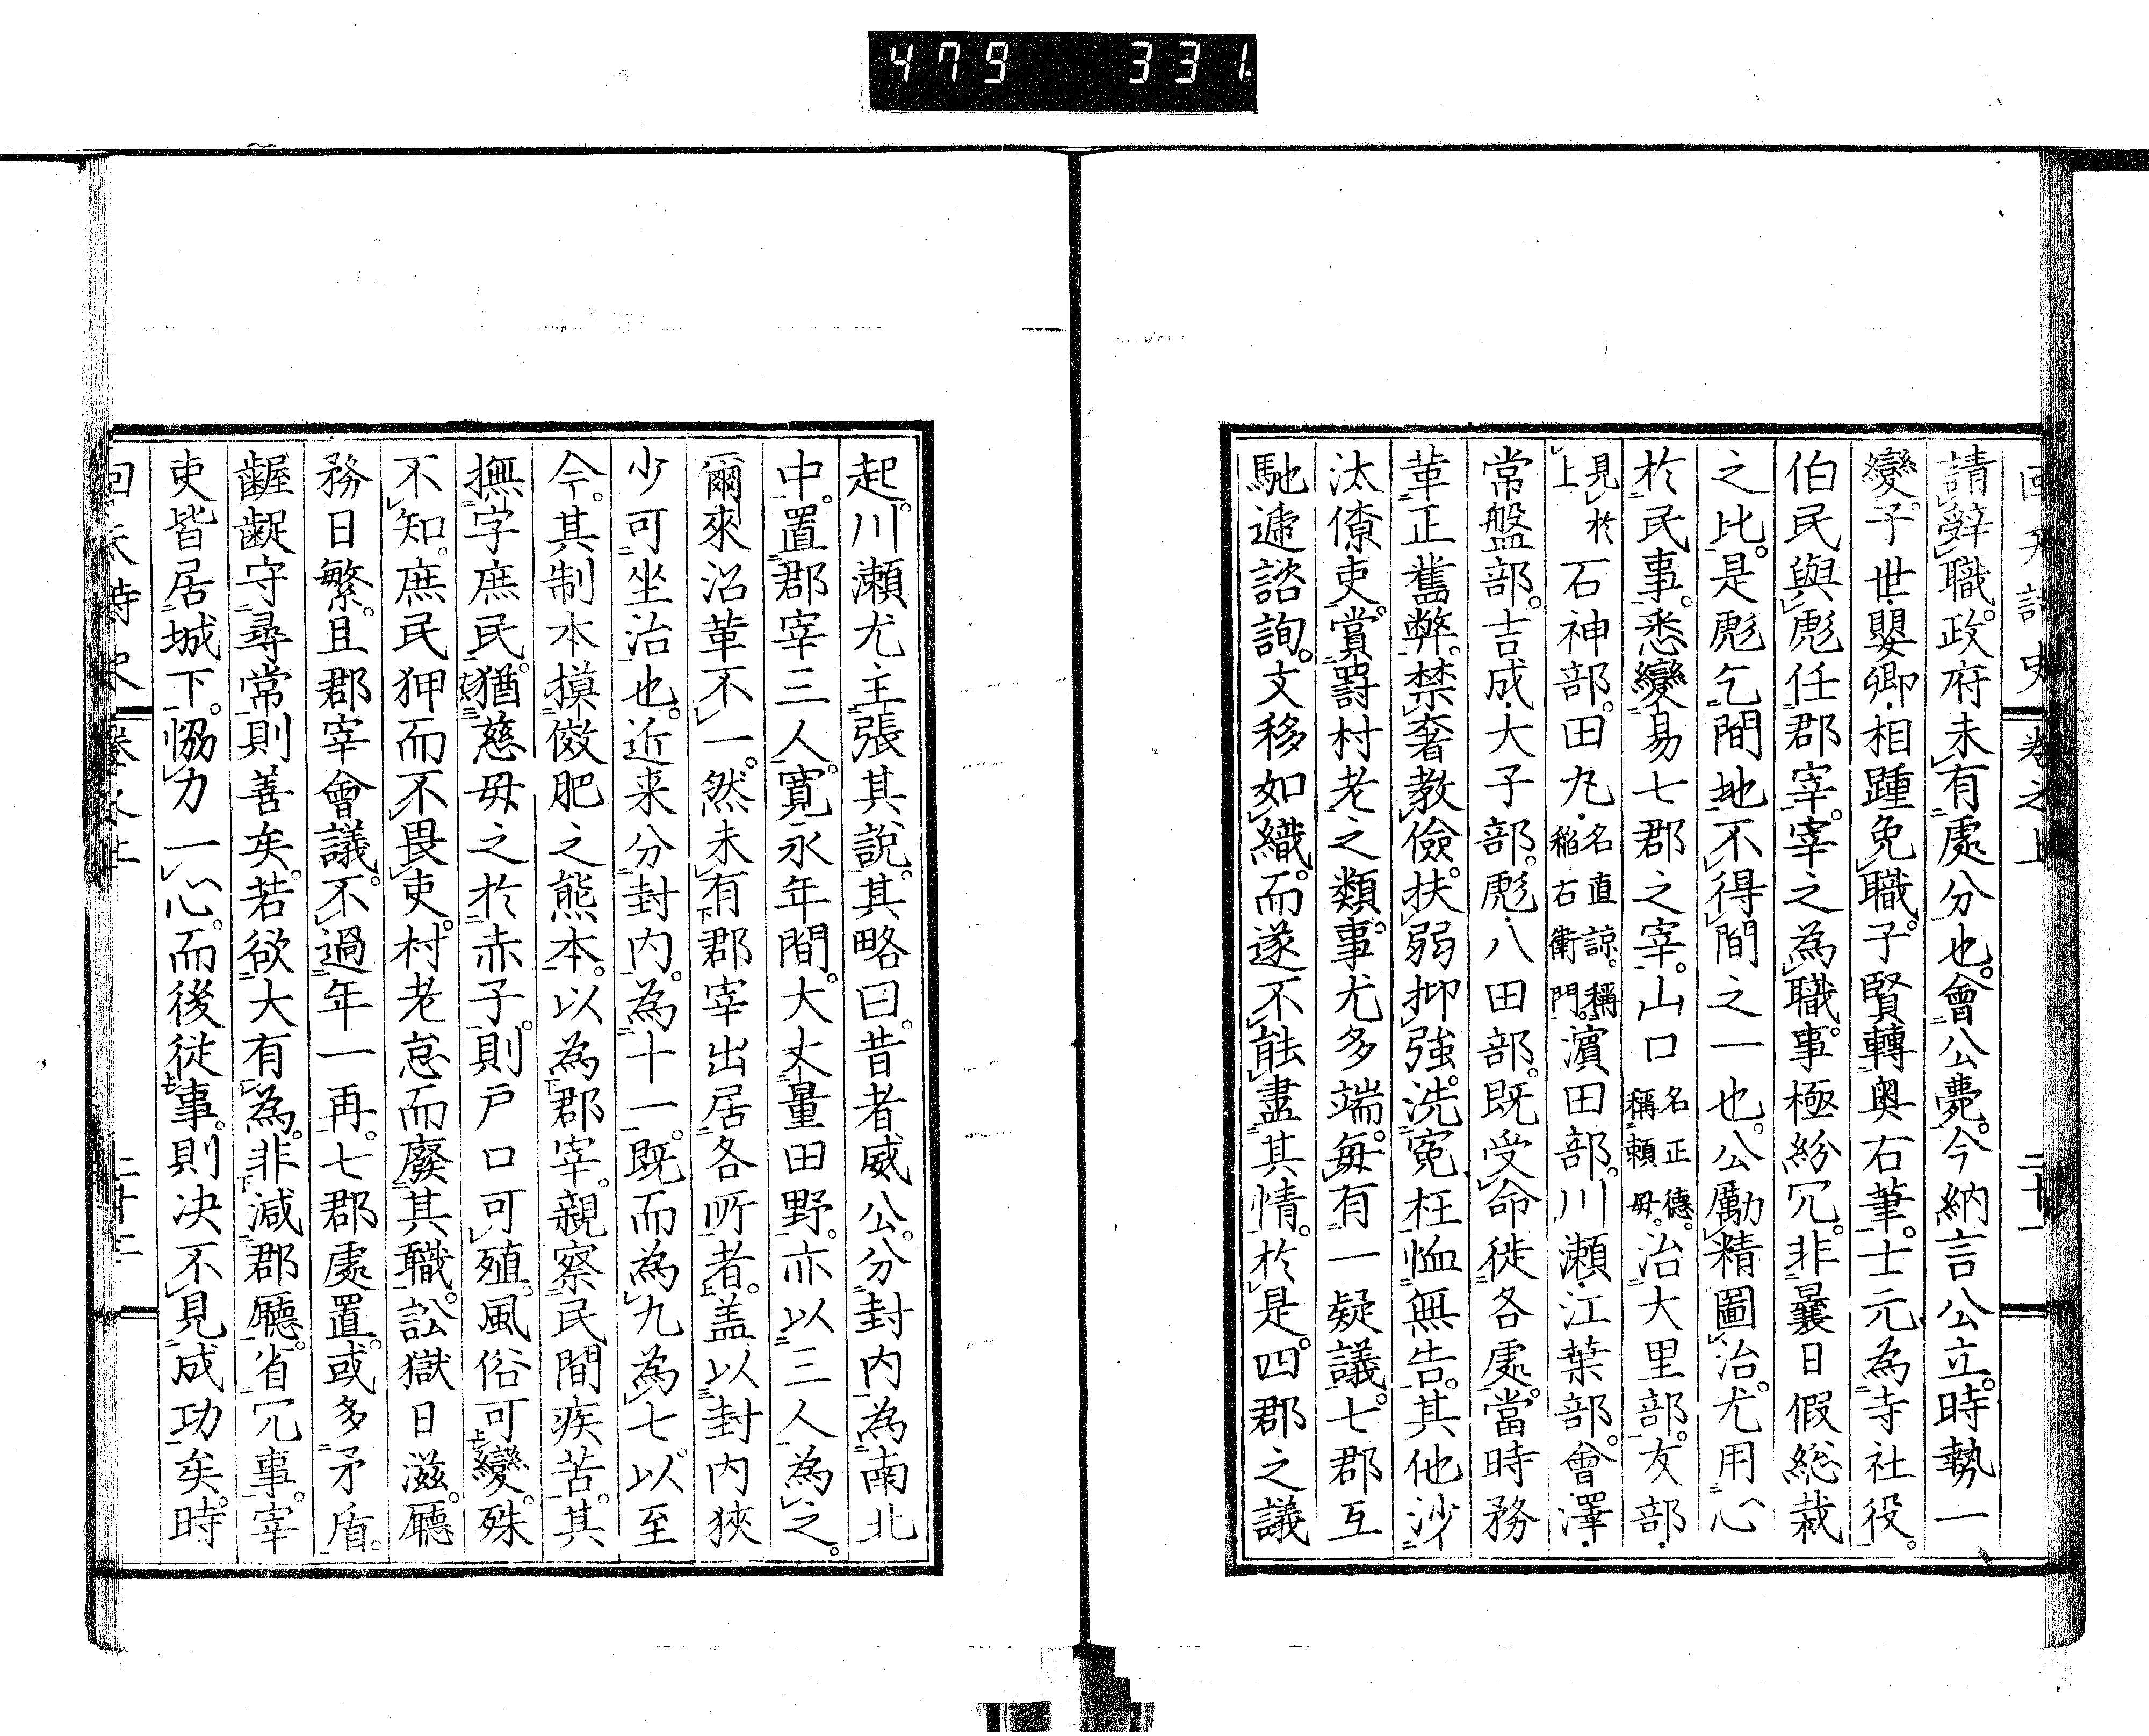 479 331
請辭職。政府未有處分也。會公薨。今納言公立。時勢一
變。子世嬰卿相踵免職。子賢轉奥右筆。士元為寺社役。
伯民與彪任郡宰。宰之為職。事極紛冗。非曩日假総裁
之比。是彪乞間地。不得間之一也。公勵精圖治。尤用心
於民事。悉變易七郡之宰。山口名正德。稱頼母。治大里部。友部・
見於上石神部。田丸・名直諒。稱稲右衛門。濱田部。川瀬・江葉部。會澤・
常盤部。吉成・大子部。彪・八田部。既受命徙各處。當時務
革正舊弊。禁奢教儉。扶弱抑強。洗寃枉恤無告。其他沙
汰僚吏。賞罸村老之類。事尤多端。毎有一疑議。七郡互
馳遞諮詢。文移如織。而遂不能盡其情。於是。四郡之議
起。川瀬尤主張其說。其略曰。昔者威公。分封内為南北
中。置郡宰三人。寛永年間。大丈量田野。亦以三人為之。
爾來沿革不一。然未有郡宰出居各所者。盖以封内狹
少可坐治也。近来分封内。為十一。既而為九為七。以至
今。其制本摸倣肥之熊本。以為郡宰。親察民間疾苦。其
撫字庶民。猶慈毋之於赤子。則戸口可殖。風俗可變。殊
不知。庶民狎而不畏吏。村老怠而廢其職。訟獄日滋。廳
務日繁。且郡宰會議。不過年一再。七郡處置。或多矛盾。
齷齪守尋常則善矣。若欲大有為。非減郡廳。省冗事。宰
吏皆居城下。恊力一心。而後従事。則决不見成功矣。時